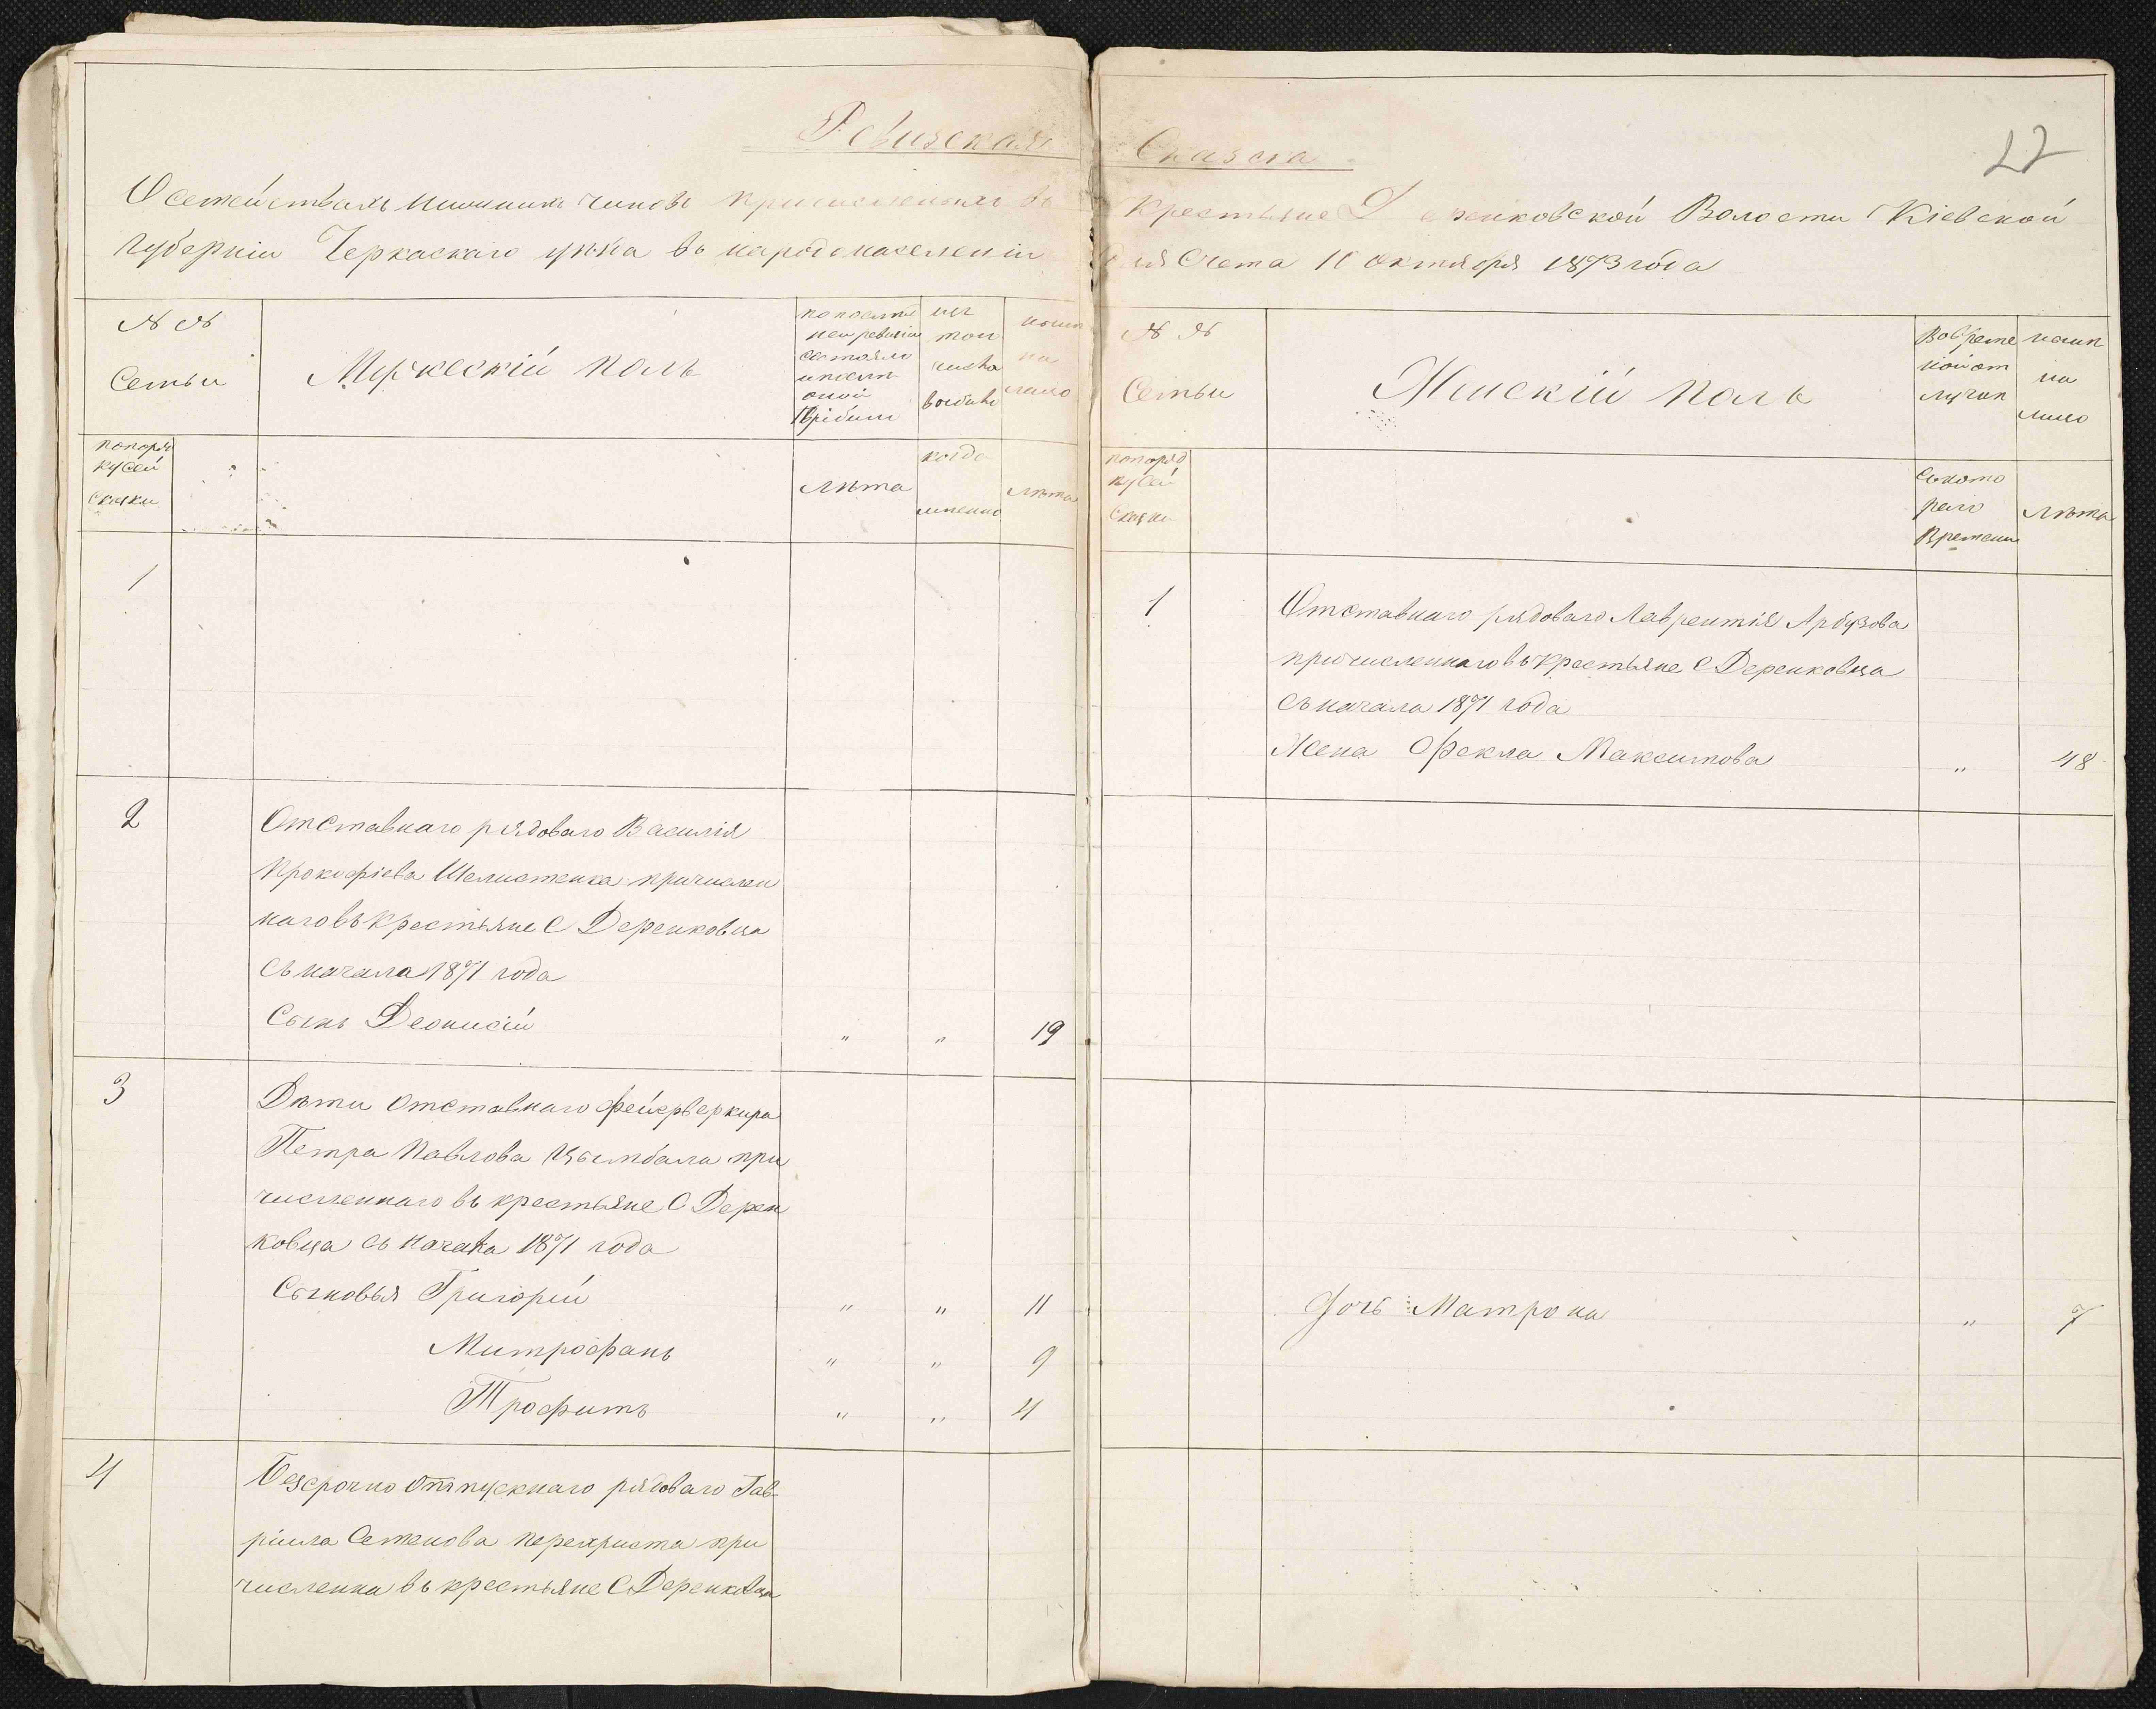 Ревизская Сказка
22
О семействахъ нижнихъ чиновъ причисленныхъ въ крестьяне Деренковской Волости Кіевской
Губерніи Черкаскаго уѣзда въ народонаселеніи для Счета 10 октября 1873 года
№ №
Семьи
Мужескій полъ
по послѣд
ней ревизіи
состояло
и послѣ
оной
прибыло
изъ
того
числа
выбыло
нынѣ
на
лицо
попоряд
ку сей
сказки
лѣта
когда
именно
лѣта
1
2
Отставнаго рядоваго Василія
Прокофіева Шелистенка причислен
наго въ крестьяне С Деренковца
съ начала 1871 года
Сынъ Деонисій " " 19
3
Дѣти отставнаго фейерверкира
Петра Павлова Цымбала при
численнаго въ крестьяне С Дерен
ковца съ начала 1871 года
Сыновья Григорій " " 11
Митрофанъ " " 9
Трофимъ " " 4
4
Безсрочно отпускнаго рядоваго Гав-
ріила Семенова Перехриста при
численна въ крестьяне С Деренковца
№ №
Семьи
Женскій полъ
Во време
ной от
лучкѣ
нынѣ
на
лицо
попоряд
ку сей
сказки
Съ кото
раго
времени
Лѣта
1
Отставнаго рядоваго Лаврентія Арбузова
причисленнаго въ крестьяне С Деренковца
Съ начала 1871 года
Жена Фекла Максимова " 48
Дочь Матрона " 7